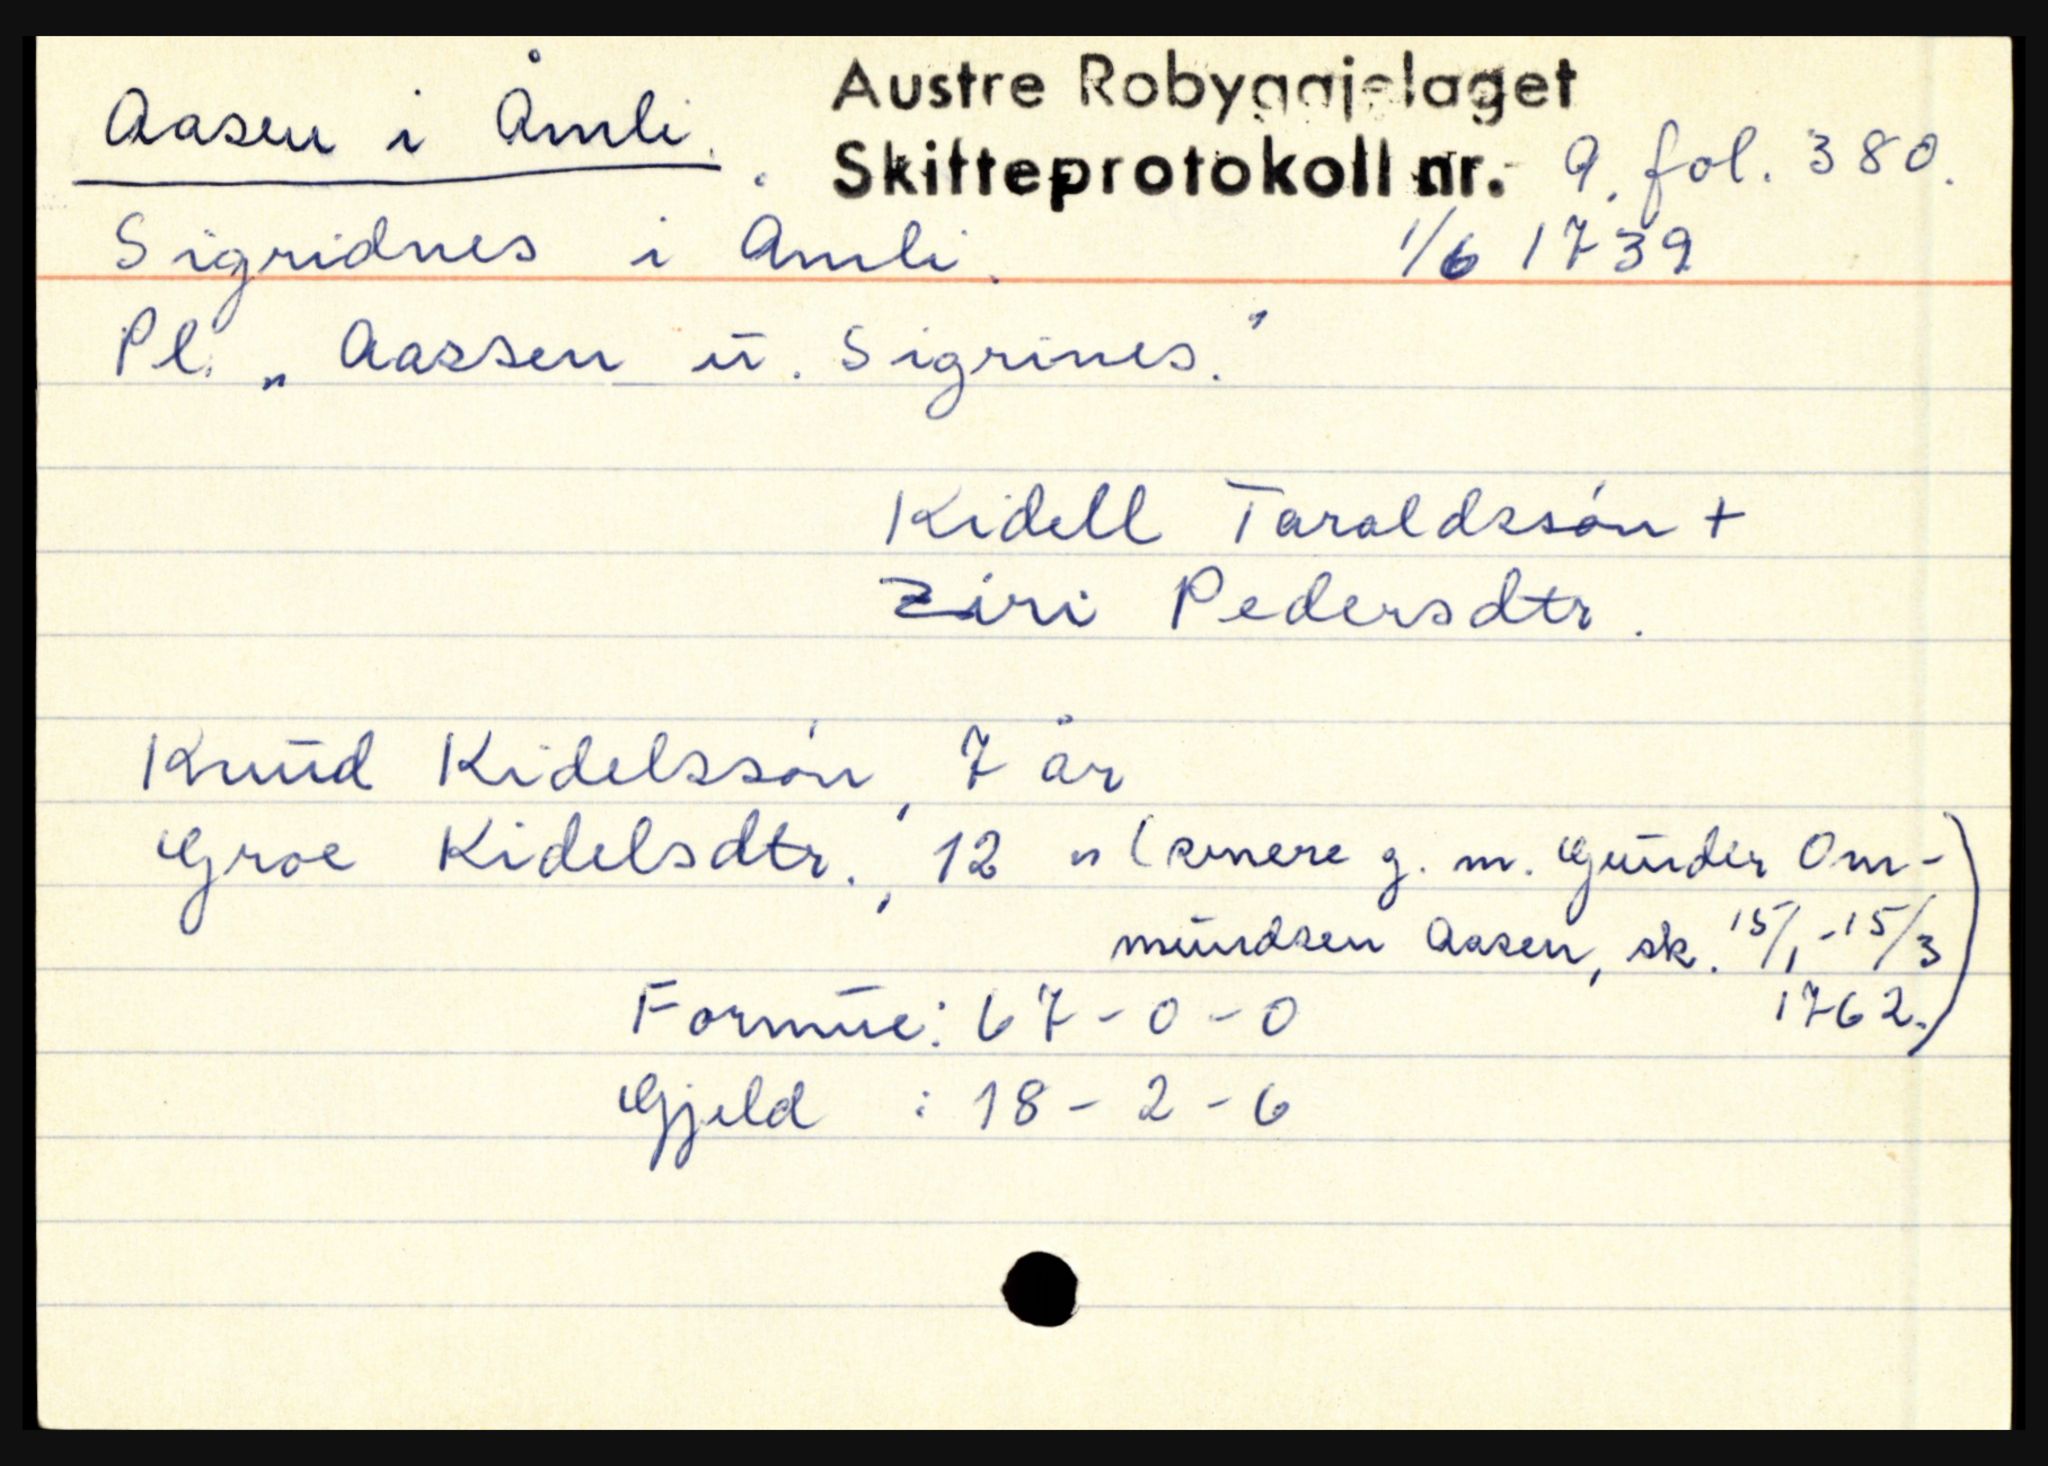 Aasen i Åmli.
Austre Robyggjelaget
Skifteprotokoll nr. 9. fol. 380.
Sigridnes i Åmli.
1/6 1739
Pl. „Aassen u. Sigrines."
Kidell Taraldssón +
Ziri Pedersdtr.
Knud Kidelssón, 7 år
Groe Kidelsdtr., 12 " (senere g. m. Gunder Om-
mundsen Aasen, sk. 15/1-15/3
1762.)
Formue: 67-0-0
Gjeld : 18-2-6